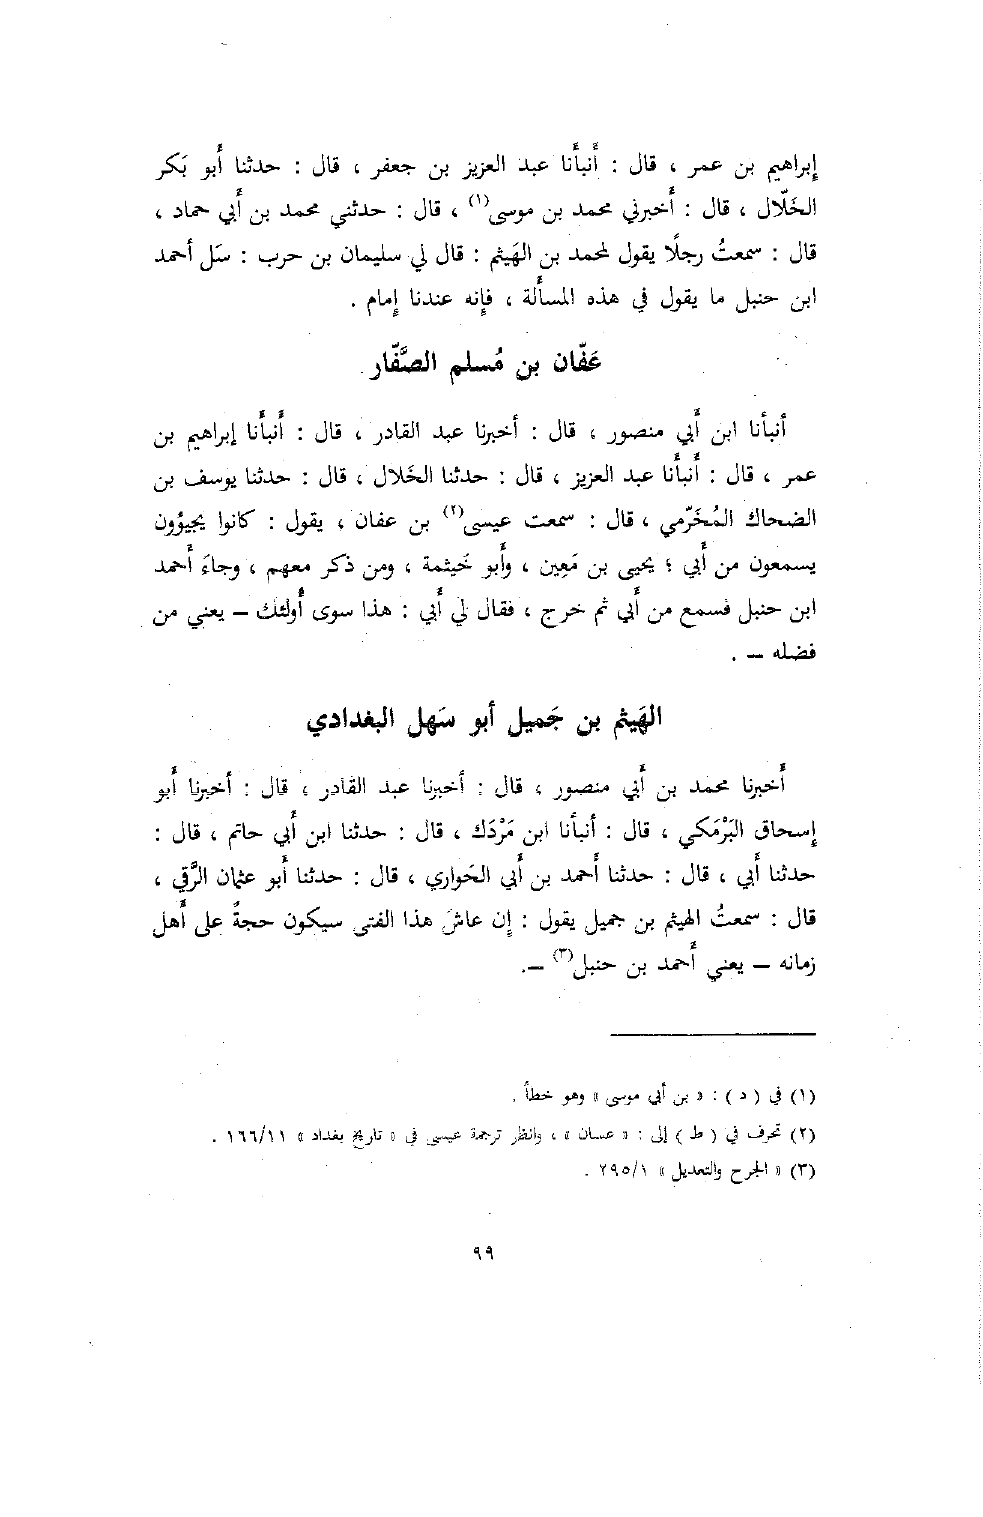 إبراهيم بن عمر ، قال : أنبأنا عبد العزيز بن جعفر ، قال : حدثنا أبو بَكر
الخَلّال ، قال : أخبرني محمد بن موسى(١) ، قال : حدثني محمد بن أبي حماد ،
قال : سمعتُ رجلًا يقول لمحمد بن الهَيثم : قال لي سليمان بن حرب : سَل أحمد
ابن حنبل ما يقول في هذه المسألة ، فإنه عندنا إمام .
عَفّان بن مُسلم الصَّفّار
أنبأنا ابن أبي منصور ، قال : أخبرنا عبد القادر ، قال : أنبأنا إبراهيم بن
عمر ، قال : أنبأنا عبد العزيز ، قال : حدثنا الخَلال ، قال : حدثنا يوسف بن
الضحاك المُخَرّمي ، قال : سمعت عيسى(٢) بن عفان ، يقول : كانوا يجيؤون
يسمعون من أبي ؛ يحيى بن مَعِين ، وأبو خَيثمة ، ومن ذكر معهم ، وجاءَ أحمد
ابن حنبل فسمع من أبي ثم خرج ، فقال لي أبي : هذا سوى أولئك – يعني من
فضله – .
الهَيثم بن جَميل أبو سَهل البغدادي
أخبرنا محمد بن أبي منصور ، قال : أخبرنا عبد القادر ، قال : أخبرنا أبو
إسحاق البَرْمَكي ، قال : أنبأنا ابن مَرْدَك ، قال : حدثنا ابن أبي حاتم ، قال :
حدثنا أبي ، قال : حدثنا أحمد بن أبي الحَواري ، قال : حدثنا أبو عثمان الرَّقي ،
قال : سمعتُ الهيثم بن جميل يقول : إن عاشَ هذا الفتى سيكون حجةً على أهل
زمانه – يعني أحمد بن حنبل(٣) –.
(١) في ( د ) : « بن أبي موسى » وهو خطأ .
(٢) تحرف في ( ط ) إلى : « عسان » ، وانظر ترجمة عيسى في « تاريخ بغداد » ١٦٦/١١ .
(٣) « الجرح والتعديل » ٢٩٥/١ .
٩٩